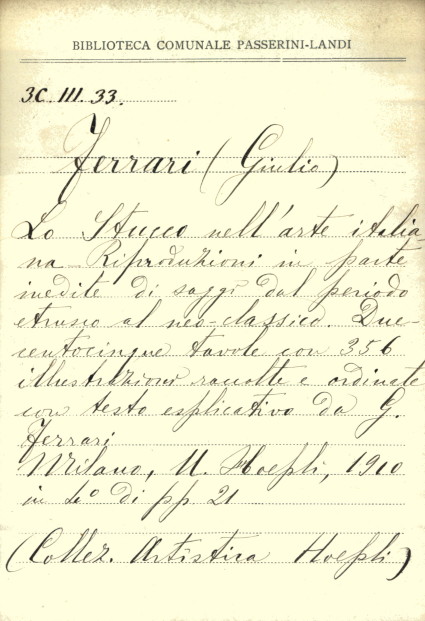 BIBLIOTECA COMUNALE PASSERINI-LANDI
3C. III. 33.
Ferrari (Giulio)
Lo Stucco nell'arte italia-
na - Riproduzioni in parte
inedite di saggi dal periodo
etrusco al neo-classico. Due-
centocinque tavole con 356
illustrazioni raccolte e ordinate
con testo esplicativo da G.
Ferrari
Milano, U. Hoepli, 1910
in 4° di pp 21
(Collez. Artistica Hoepli)